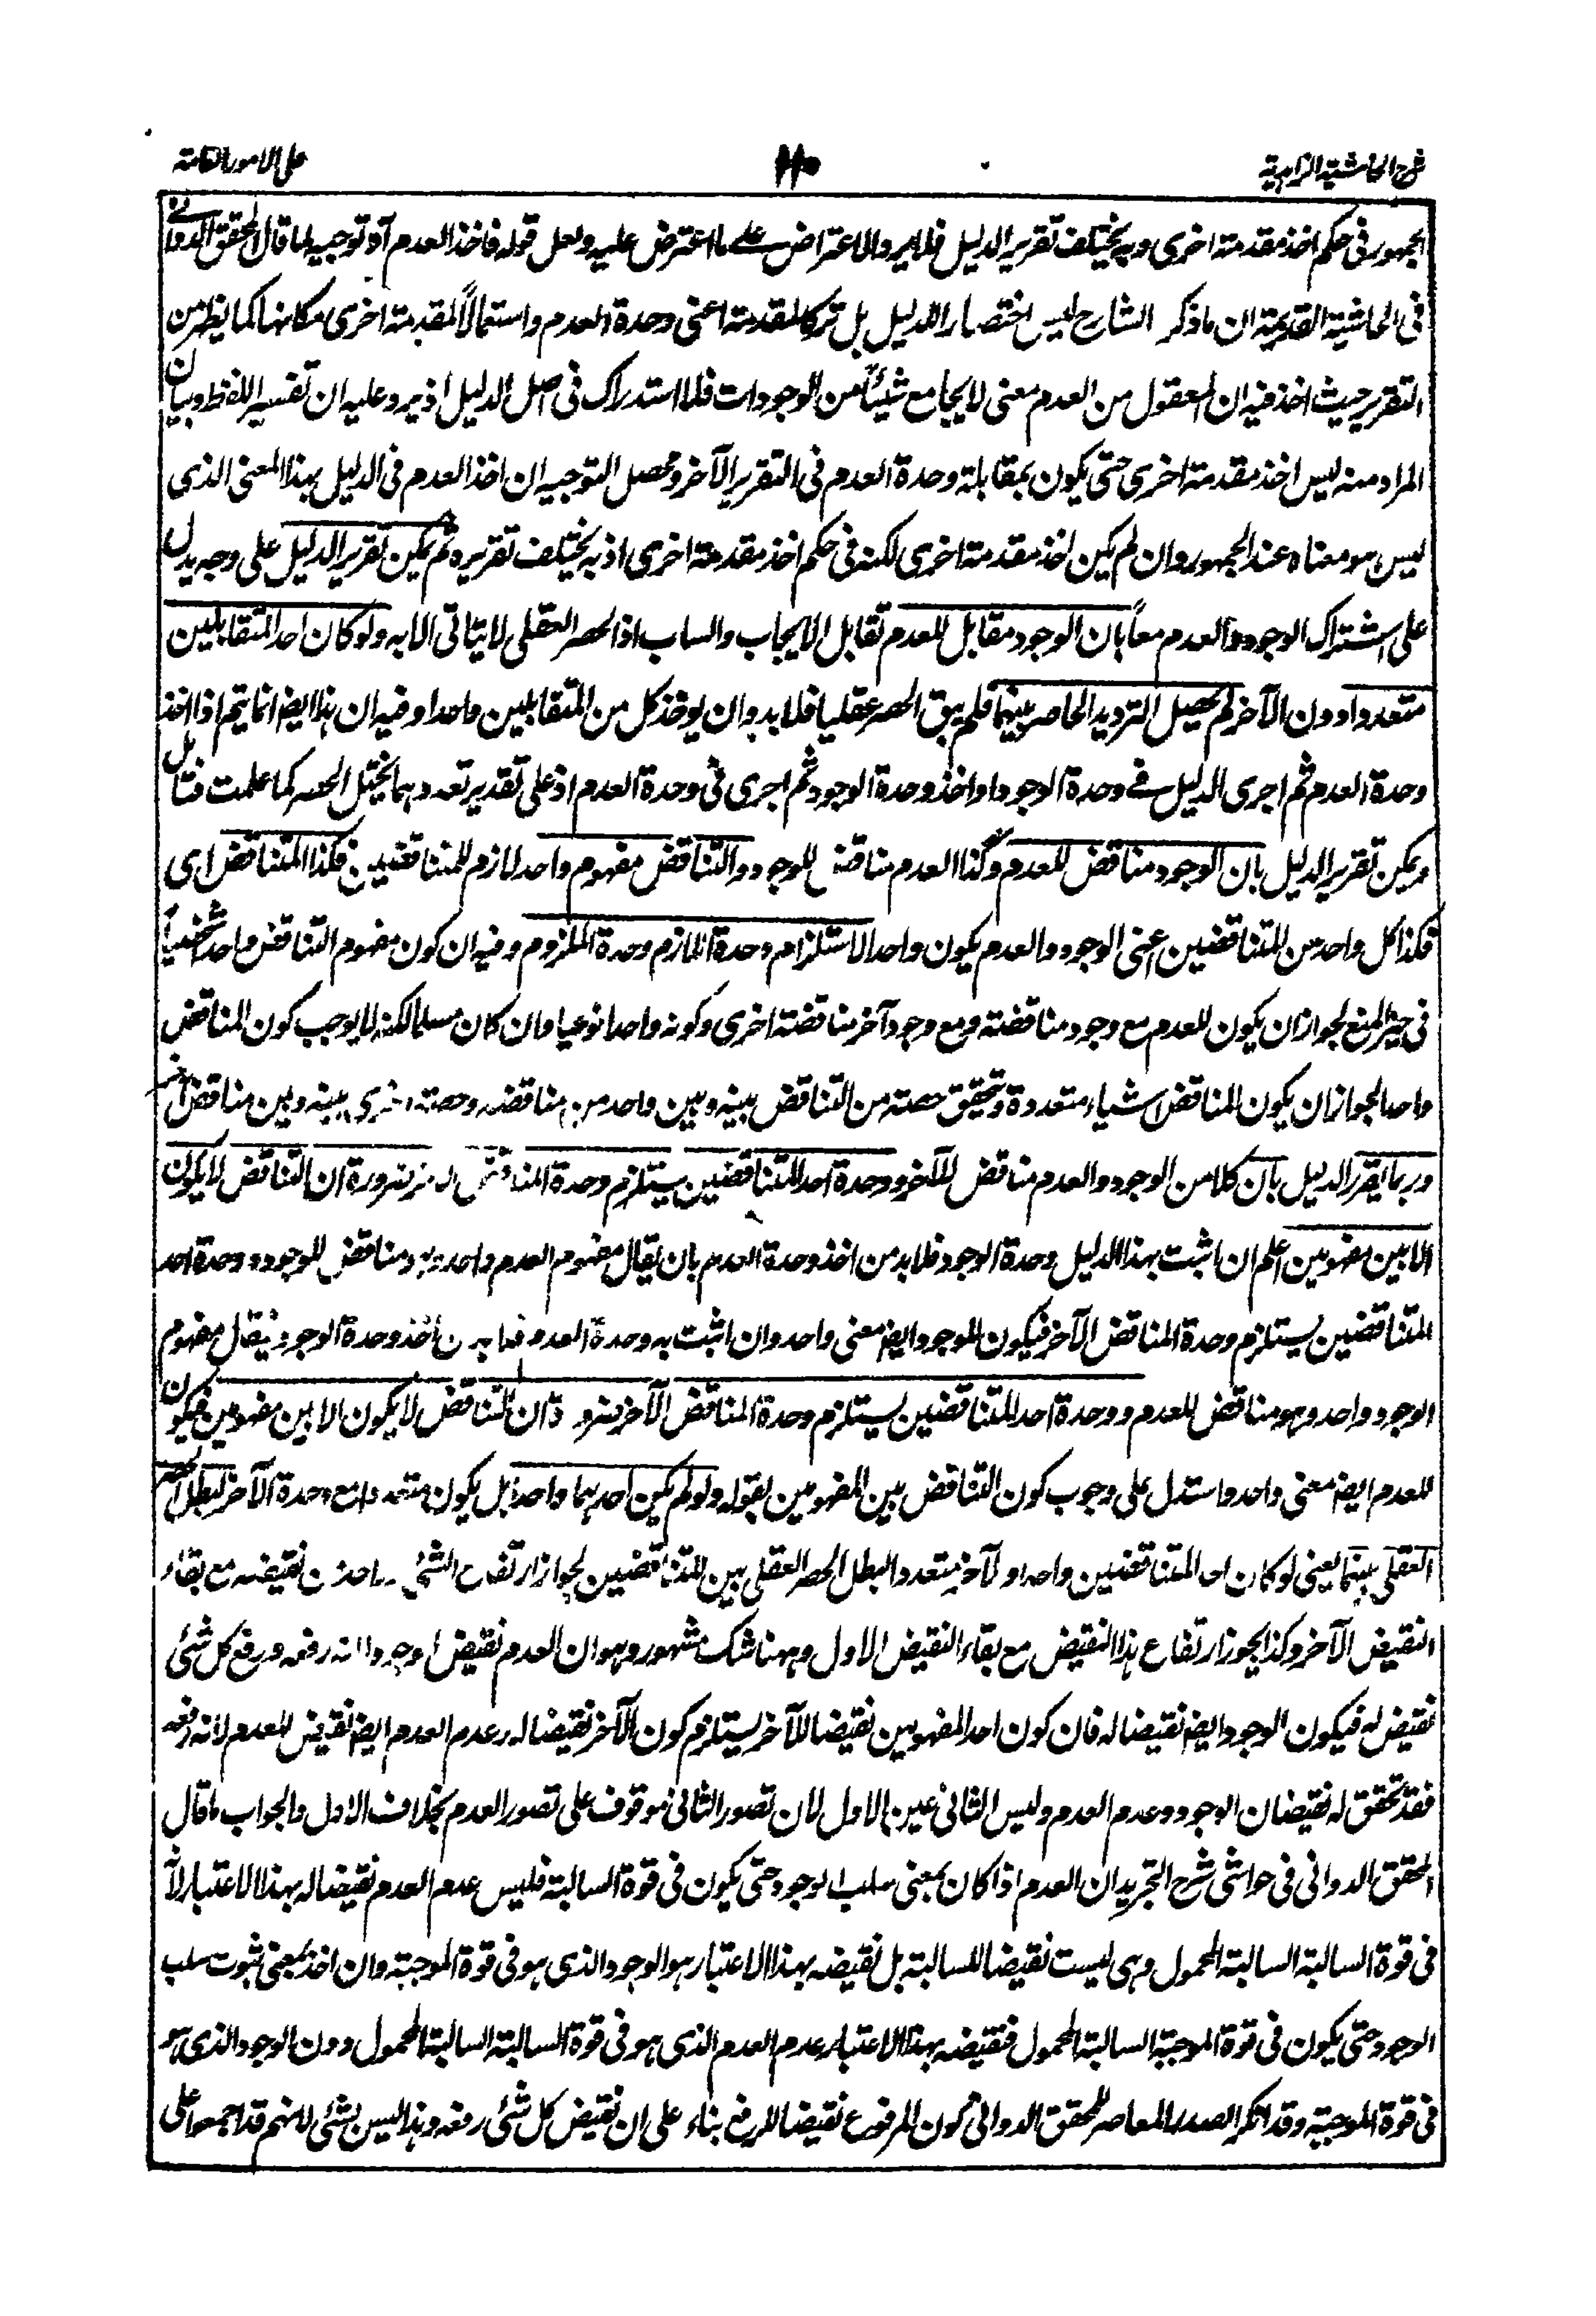 شرح الحاشية الزاهدية
١١٠
على الامور العامة
الجمهور فى حكم اخذ مقدمة اخرى وبه يختلف تقرير الدليل فلا يرد الاعتراض على ما اعترض عليه ولعل قوله فاخذ العدم آه توجيه لما قال المحقق الدوانى
فى الحاشية القديمة ان ما ذكر الشارح ليس اختصارا للدليل بل تركا لمقدمة اعنى وحدة العدم واستعمالاً لمقدمة اخرى مكانها كما يظهر من
التقرير حيث اخذ فيه ان المعقول من العدم معنى لا يجامع شيئاً من الوجودات فلا استدراك فى اصل الدليل اذ يرد عليه ان تفسير اللفظ وبيان
المراد منه ليس اخذ مقدمة اخرى حتى يكون بمقابلة وحدة العدم فى التقرير الآخر ومحصل التوجيه ان اخذ العدم فى الدليل بهذا المعنى الذى
ليس هو معناه عند الجمهور وان لم يكن اخذ مقدمة اخرى لكنه فى حكم اخذ مقدمة اخرى اذ به يختلف تقريره ثم يمكن تقرير الدليل على وجه يدل
على اشتراك الوجود والعدم معاً بان الوجود مقابل للعدم تقابل الايجاب والسلب اذ الحصر العقلى لا يتاتى الا به ولو كان احد المتقابلين
متعددا دون الآخر لم يحصل الترديد الحاصر بينهما فلم يبق الحصر عقليا فلا بد وان يوخذ كل من المتقابلين واحدا وفيه ان هذا ايضا انما يتم اذا اخذ
وحدة العدم ثم اجرى الدليل فى وحدة الوجود او اخذ وحدة الوجود ثم اجرى فى وحدة العدم اذ على تقدير تعددهما يختل الحصر كما علمت فتامل
ويمكن تقرير الدليل بان الوجود مناقض للعدم وكذا العدم مناقض للوجود والتناقض مفهوم واحد لازم للمتناقضين فكذا المتناقض اى
فكذا كل واحد من المتناقضين اعنى الوجود والعدم يكون واحدا لاستلزام وحدة اللازم وحدة الملزوم وفيه ان كون مفهوم التناقض واحدا شخصياً
فى حيز المنع لجواز ان يكون للعدم مع وجود مناقضة ومع وجود آخر مناقضة اخرى وكونه واحدا نوعيا وان كان مسلما لكنه لا يوجب كون المناقض
واحدا لجواز ان يكون المناقض اشياء متعددة وتحقق حصة من التناقض بينه وبين واحد من مناقضه وحصة اخرى بينه وبين مناقض آخر
وربما يقرر الدليل بان كلا من الوجود والعدم مناقض للآخر ووحدة احد المتناقضين يستلزم وحدة المناقض الآخر ضرورة ان التناقض لا يكون
الا بين مفهومين اعلم ان اثبت بهذا الدليل وحدة الوجود فلا بد من اخذ وحدة العدم بان يقال مفهوم العدم واحد وهو مناقض للوجود ووحدة احد
المتناقضين يستلزم وحدة المناقض الآخر فيكون للوجود ايضا معنى واحد وان اثبت به وحدة العدم فلا بد من اخذ وحدة الوجود فيقال مفهوم
الوجود واحد وهو مناقض للعدم ووحدة احد المتناقضين يستلزم وحدة المناقض الآخر ضرورة ان التناقض لا يكون الا بين مفهومين فيكون
للعدم ايضا معنى واحد واستدل على وجوب كون التناقض بين المفهومين بقوله ولو لم يكن احدهما واحداً بل يكون متعددا مع وحدة الآخر لبطل الحصر
العقلى بينهما يعنى لو كان احد المتناقضين واحدا والآخر متعددا لبطل الحصر العقلى بين المتناقضين لجواز ارتفاع الشئ واحد من نقيضه مع بقاء
النقيض الآخر وكذا يجوز ارتفاع هذا النقيض مع بقاء النقيض الاول وههنا شك مشهور وهو ان العدم نقيض الوجود لانه رفعه ورفع كل شئ
نقيض له فيكون الوجود ايضا نقيضا له فان كون احد المفهومين نقيضا للآخر يستلزم كون الآخر نقيضا له وعدم العدم ايضا نقيض للعدم لانه رفعه
فقد تحقق له نقيضان الوجود وعدم العدم وليس الثانى عين الاول لان تصور الثانى موقوف على تصور العدم بخلاف الاول والجواب ما قال
المحقق الدوانى فى حواشى شرح التجريد ان العدم اذا كان بمعنى سلب الوجود حتى يكون فى قوة السالبة فليس عدم العدم نقيضا له بهذا الاعتبار لانه
فى قوة السالبة السالبة المحمول وهى ليست نقيضا للسالبة بل نقيضه بهذا الاعتبار هو الوجود الذى هو فى قوة الموجبة وان اخذ بمعنى ثبوت سلب
الوجود حتى يكون فى قوة الموجبة السالبة المحمول فنقيضه بهذا الاعتبار عدم العدم الذى هو فى قوة السالبة السالبة المحمول دون الوجود الذى هو
فى قوة الموجبة وقد انكر الصدر المعاصر للمحقق الدوانى كون المرفوع نقيضا للرفع بناء على ان نقيض كل شئ رفعه وهذا ليس بشئ لانهم قد اجمعوا على